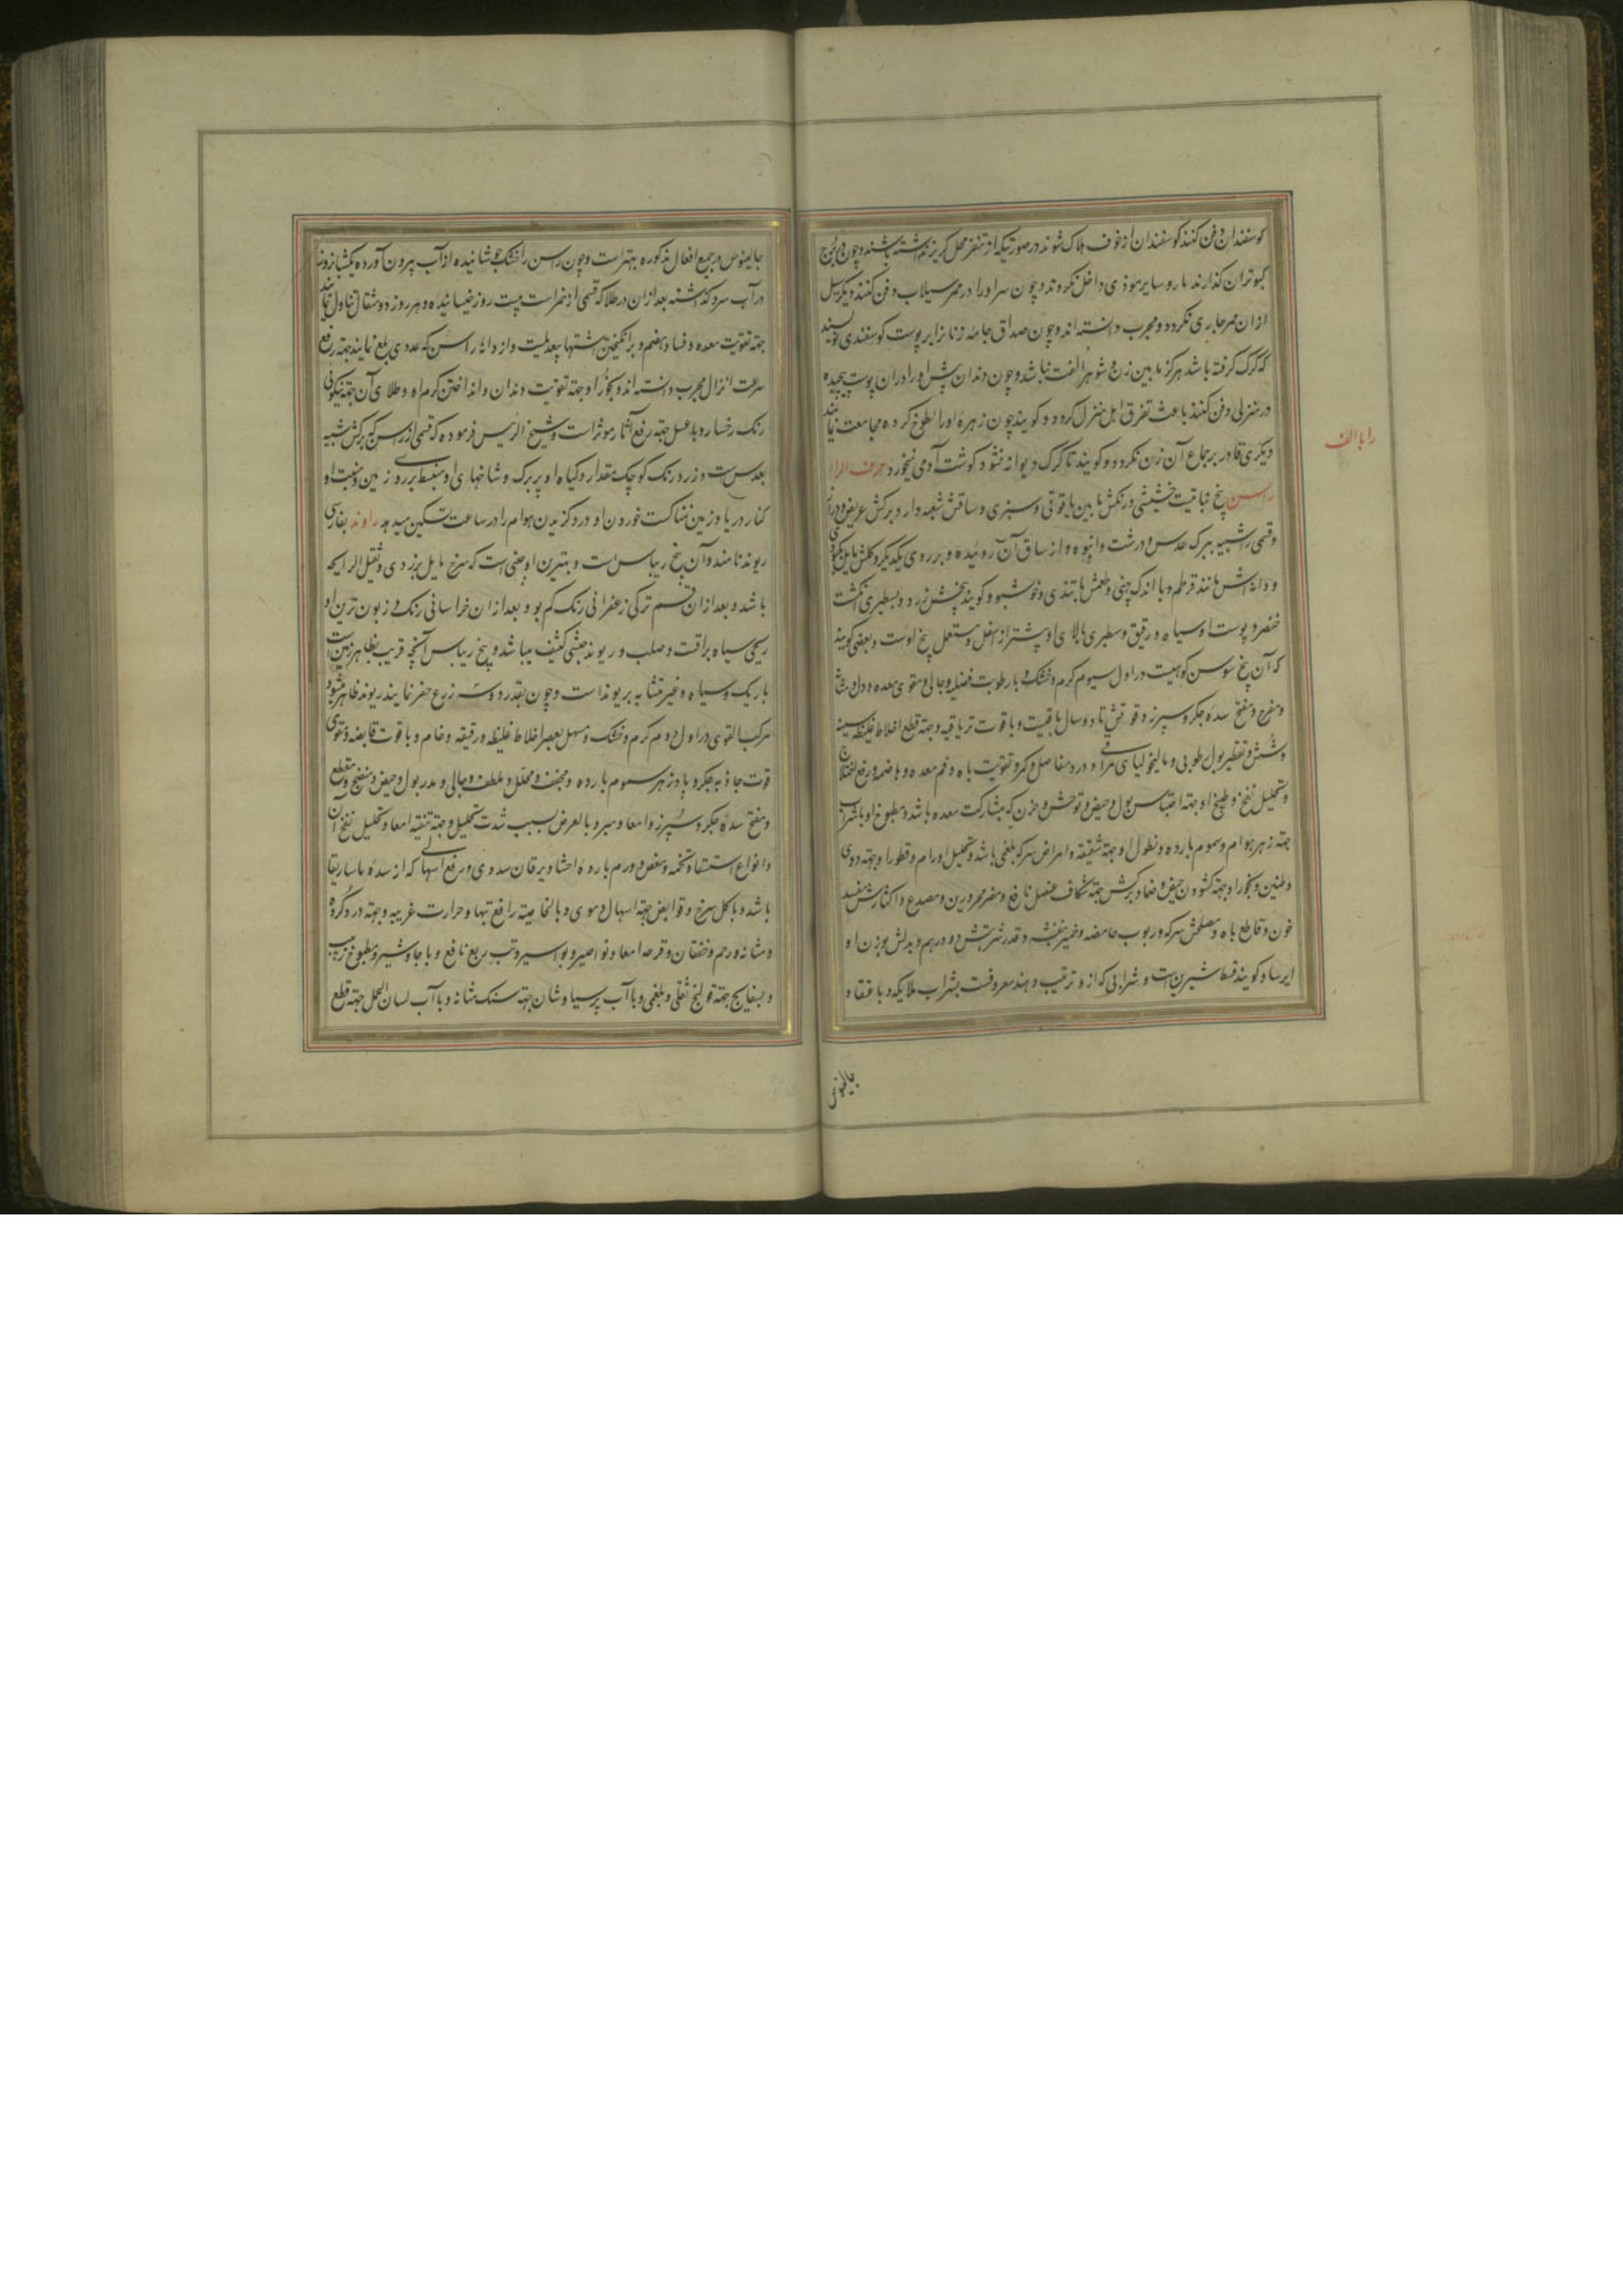 کوسفندان دفن کنند کوسفندان از خوف هلاک شوند در صورتیکه از تنفر محل کریز نداشته باشند و چون در برج
کبوتران کذارند مار و سایر موذی داخل نکردند و چون سر او را در ممر سیلاب دفن کنند دیکر سیل
از ان ممر جاری نکردد و مجرب دانسته اند و چون صداق جامه زنانرا بر پوست کوسفندی نویسند
که کرک کرفته باشد هرکز مابین زن و شوهر الفت نباشد و چون دندان پیش او را در ان پوست پیچیده
در منزلی دفن کنند باعث تفرق اهل منزل کردد و کویند چون زهره او را لطوخ کرده مجامعت نمایند
دیکری قادر بر جماع آن زن نکردد و کویند تا کرک دیوانه نشود کوشت آدمی نمیخورد حرف الراء
را با الف
راسن بیخ نباتیست خشبی رنکش مابین یاقوتی و سبزی و ساقش شعبه دار و برکش عریض و دراز
و قسمی را شبیه ببرک عدس و درشت و انبوه و از ساق آن روئیده و بر روی یکدیکر و کلش مایل بکبودی
و دانه اش مانند قرطم و با اندک پهنی و طعمش با تندی و خوشبو و کویند بیخش زرد و بسطبری انکشت
خنصر و پوست او سیاه و رقیق و سطبری بالای او بیشتر از اسفل و مستعمل بیخ اوست و بعضی کویند
که آن بیخ سوسن کوهیست در اول سیوم کرم و خشک و با رطوبت فضلیه و جالی و مقوی معده و دل و مثانه
و مفرح و مفتح سده جکر و سپرز و قوتش تا دو سال باقیست و با قوت تریاقیه و جهة قطع اخلاط غلیظه سینه
و شش و تقطیر بول رطوبی و مالیخولیای مراقی و درد مفاصل و کمر و تقویت باه و فم معده و هاضمه و رفع اختلاج
و تحلیل نفخ و طبیخ او جهة احتباس بول و حیض و توحش و حزن که بمشارکت معده باشد و مطبوخ او با شراب
جهة زهر هوام و سموم بارده و نطول او جهة شقیقه و امراض سر که بلغمی باشد و تحلیل اورام و قطور او جهة دوی
و طنین و بخور او جهة کشودن حیض و ضماد برکش جهة شکاف عضل نافع و مضر محرورین و مصدع و اکثارش مفسد
خون و قاطع باه و مصلحش سرکه و ربوب حامضه و خمیر بنفشه و قدر شربتش دو درهم و بدلش بوزن او
ایرسا و کویند قسط شیرین است و شرابی که از او ترتیب دهند معروفست بشراب ملایکه و باعتقاد
جالینوس
جالینوس در جمیع افعال مذکوره بهتر است و چون راسن را خشک جوشانیده از آب بیرون آورده یکشبانروز
در آب سرد کذاشته بعد از ان در طلا که قسمی از خمر است بیست روز خیسانیده و هر روز دو مثقال تناول نمایند
جهة تقویت معده و فساد هضم و برانکیختن اشتها بیعدیلست و از دانه راسن که عددی بلع نمایند جهة رفع
سرعت انزال مجرب دانسته اند و بخور او جهة تقویت دندان و انداختن کرم او و طلای آن جهة نیکوئی
رنک رخسار و با عسل جهة رفع آثار مؤثر است و شیخ الرئیس فرموده که قسمی از راسن که برکش شبیه
بعدس است و زرد رنک کوچک مقدار و کیاه او پر برک و شاخهای او منبسط بر روی زمین و منبت او
کنار دریا و زمین نمناکست خوردن او درد کزیدن هوام را در ساعت تسکین میدهد راوند بفارسی
ریوند نامند و آن بیخ ریباس است و بهترین او چینی است که سرخ مایل بزردی و ثقیل الرایحه
باشد و بعد از ان قسم ترکی زعفرانی رنک کم بو و بعد از ان خراسانی رنک و زبون ترین او
ریحی سیاه براقست و صلب و ریوند حبشی کثیف میباشد و بیخ ریباس آنچه قریب بظاهر زمین است
باریک و سیاه و غیر متشابه بریوند است و چون بقدر دو سه زرع حفر نمایند ریوند ظاهر میشود
مرکب القوی در اول دوم کرم و خشک و مسهل بعصر اخلاط غلیظه و رقیقه و خام و با قوت قابضه و مقوی
قوت جاذبه جکر و پادزهر سموم بارده و مجفف و محلل و ملطف و جالی و مدر بول و حیض و منضج و مقطع
و مفتح سده جکر و سپرز و امعا و مبرد بالعرض بسبب شدت تحلیل و جهة تنقیه امعا و تحلیل نفخ آن
و انواع استسقا و تخمه و مغص و ورم بارده احشا و یرقان سددی و رفع اسهالی که از سده ماساریقا
باشد و با کل سرخ و قوابض جهة اسهال دموی و بالخاصیة رافع تبها و حرارت غریبه و جهة درد کرده
و مثانه و رحم و خفقان و قرحه امعا و نواصیر و بواسیر و تب ربع نافع و با جاوشیر و مطبوخ زبیب
و بسفایج جهة قولنج ثفلی و بلغمی و با آب پرسیاوشان جهة سنک مثانه و با آب لسان الحمل جهة قطع